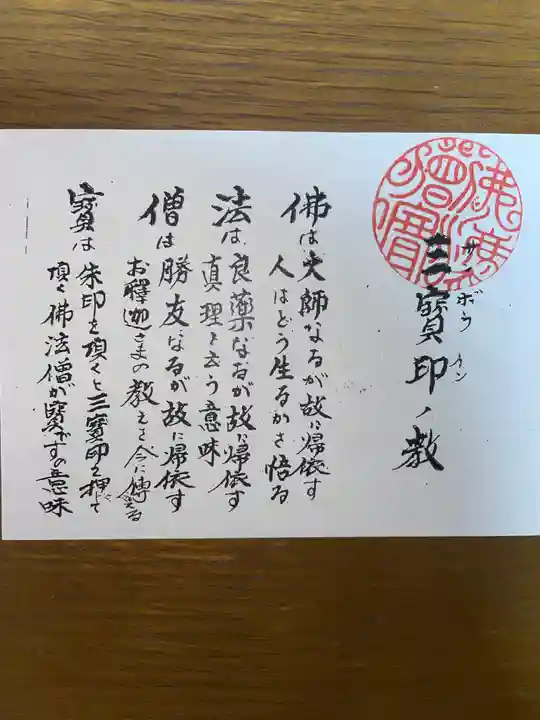 三寳印ノ教
サンボウイン
佛は大師なるが故に帰依す
人はどう生るかを悟る
法は良薬なるが故に帰依す
真理と云う意味
僧は勝友なるが故に帰依す
お釋迦さまの教えを今に傳える
寳は朱印を頂くと三寳印を押して
頂く佛法僧が寳ですの意味